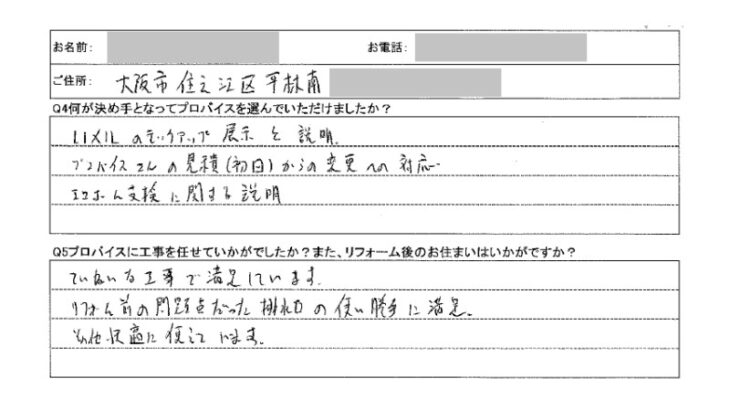 お名前: お電話:
ご住所: 大阪市住之江区平林南
Q4何が決め手となってプロバイスを選んでいただけましたか?
LIXILのモックアップ展示と説明.
プロバイスさんの見積(初回)からの変更への対応.
エコホーム支援に関する説明
Q5プロバイスに工事を任せていかがでしたか?また、リフォーム後のお住まいはいかがですか?
ていねいな工事で満足しています.
リフォーム前の問題点だった の使い勝手に満足.
その他快適に使えています.